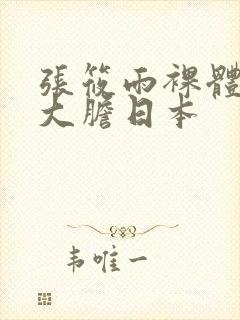 張筱雨裸體
大膽日本
韦唯一